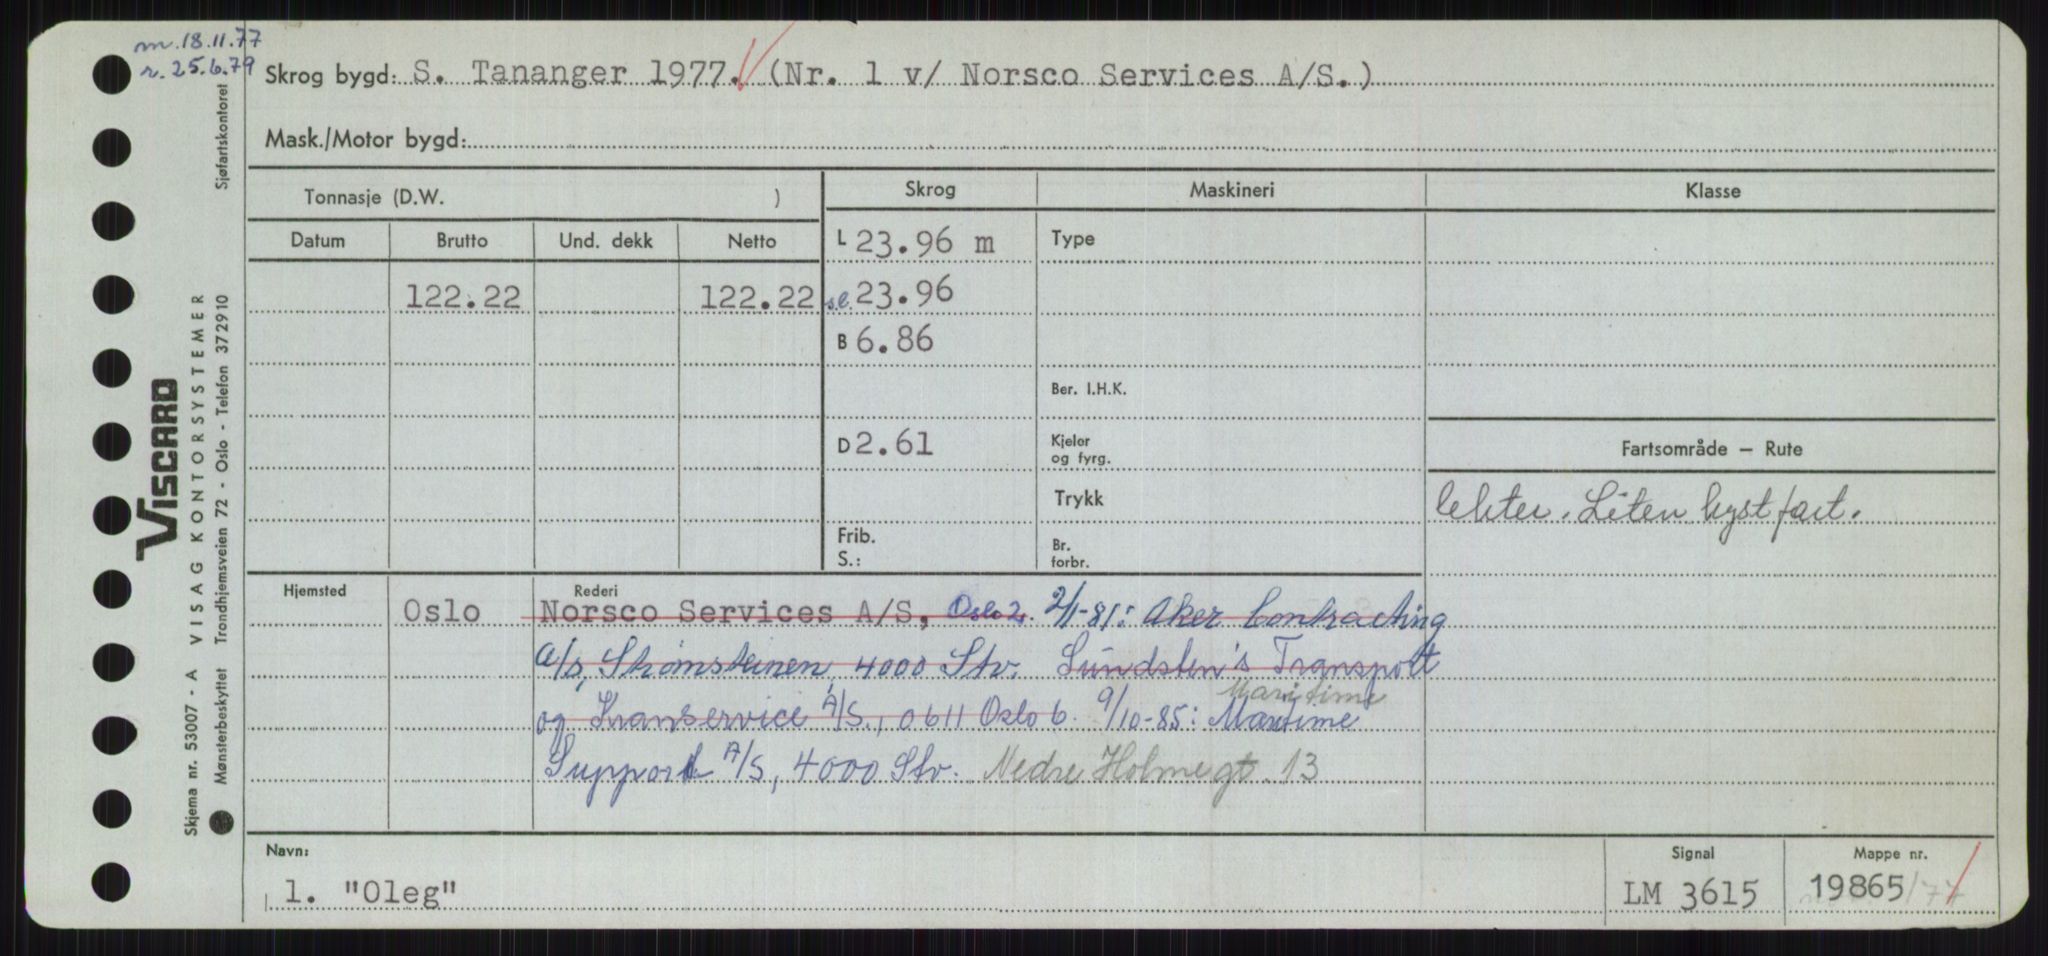 m. 18.11.77
r. 25.6.79
Skrog bygd: S. Tananger 1977. (Nr. 1 v/ Norsco Services A/S.)
Mask./Motor bygd:
Tonnasje (D.W. )
Skrog
Maskineri
Klasse
Datum
Brutto
Und. dekk
Netto
L 23.96 m
Type
122.22
122.22
s.l. 23.96
B 6.86
Ber. I.H.K.
D 2.61
Kjeler
og fyrg.
Fartsområde – Rute
Trykk
lekter. Liten kystfart.
Frib.
S.:
Br.
forbr.
Hjemsted
Rederi
Oslo
Norsco Services A/S, Oslo 2. 2/1-81: Aker Contracting
A/S, Strømsteinen, 4000 Stv. Sundsten's Transport
Maritime
og Kranservice A/S., 0611 Oslo 6. 9/10-85: Maritime
Support A/S, 4000 Stv. Nedre Holmegt. 13
Navn:
1. "Oleg"
Signal
LM 3615
Mappe nr.
19865/77
Sjøfartskontoret
VISCARD
VISAG KONTORSYSTEMER
Trondhjemsveien 72 - Oslo - Telefon 372910
Skjema nr. 53007 - A
Mønsterbeskyttet